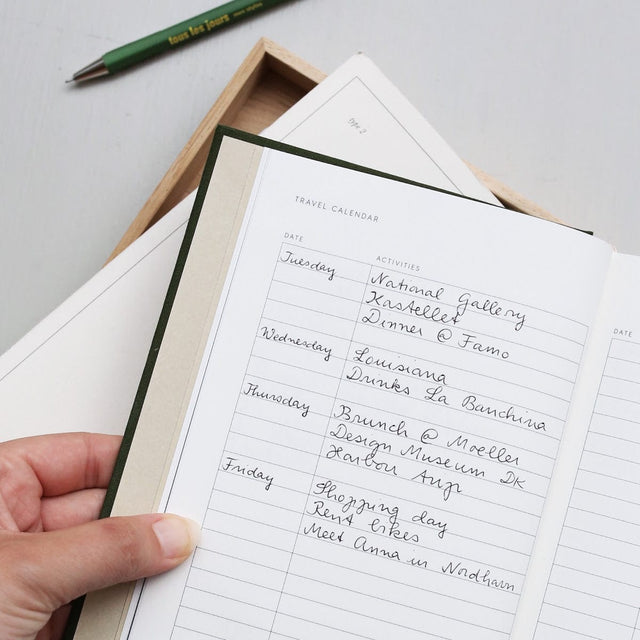 tous les jours
TRAVEL CALENDAR
DATE ACTIVITIES
Tuesday National Gallery
Kastellet
Dinner @ Famo
Wednesday Louisiana
Drinks La Banchina
Thursday Brunch @ Moeller
Design Museum DK
Harbour
Friday Shopping day
Rent bikes
Meet Anna in Nordhavn
DATE